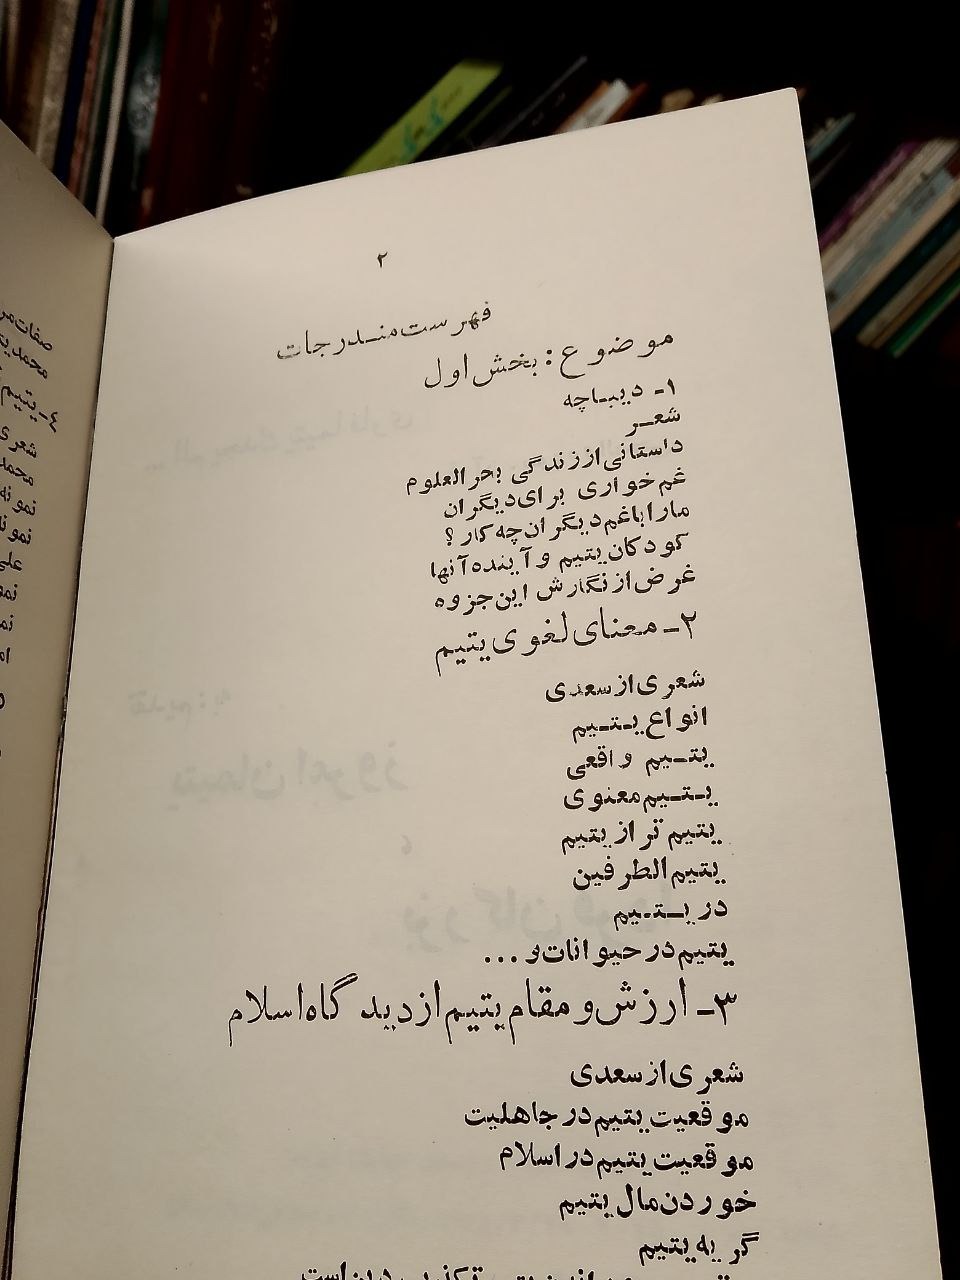 ۲
فهرست مندرجات
موضوع: بخش اول
۱- دیباچه
شعر
داستانی از زندگی بحر العلوم
غم خواری برای دیگران
ما را با غم دیگران چه کار؟
کودکان یتیم و آینده آنها
غرض از نگارش این جزوه
۲- معنای لغوی یتیم
شعری از سعدی
انواع یتیم
یتیم واقعی
یتیم معنوی
یتیم تر از یتیم
یتیم الطرفین
در یتیم
یتیم در حیوانات و ...
۳- ارزش و مقام یتیم از دیدگاه اسلام
شعری از سعدی
موقعیت یتیم در جاهلیت
موقعیت یتیم در اسلام
خوردن مال یتیم
گریه یتیم
صفات
محمد
۴- یتیم
شعری
محمد
علی